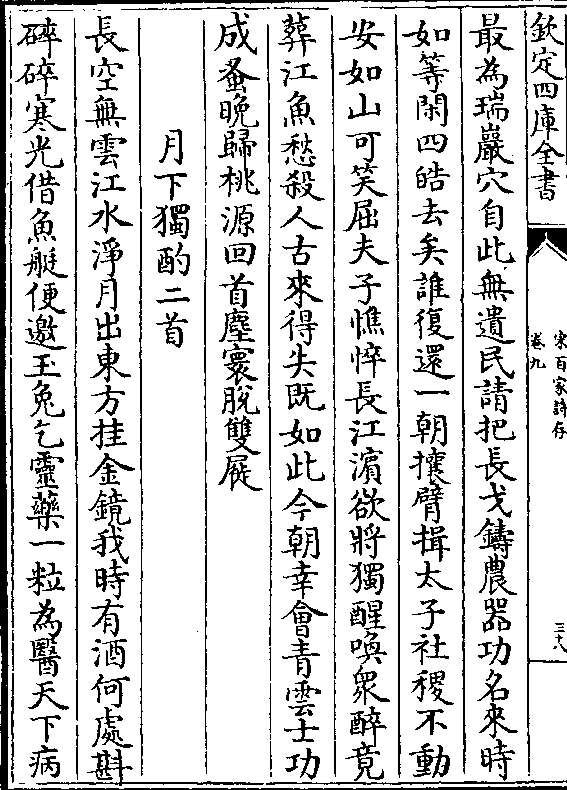 欽定四庫全書
宋百家詩存
卷九
三十八
最為瑞巖穴自此無遺民請把長戈鑄農器功名來時
如等閑四皓去矣誰復還一朝攘臂揖太子社稷不動
安如山可笑屈夫子憔悴長江濵欲將獨醒喚衆醉竟
葬江魚愁殺人古來得失既如此今朝幸會青雲士功
成蚤晚歸桃源回首塵寰脫雙屣
月下獨酌二首
長空無雲江水淨月出東方挂金鏡我時有酒何處斟
碎碎寒光借魚艇便邀玉兔乞靈藥一粒為醫天下病